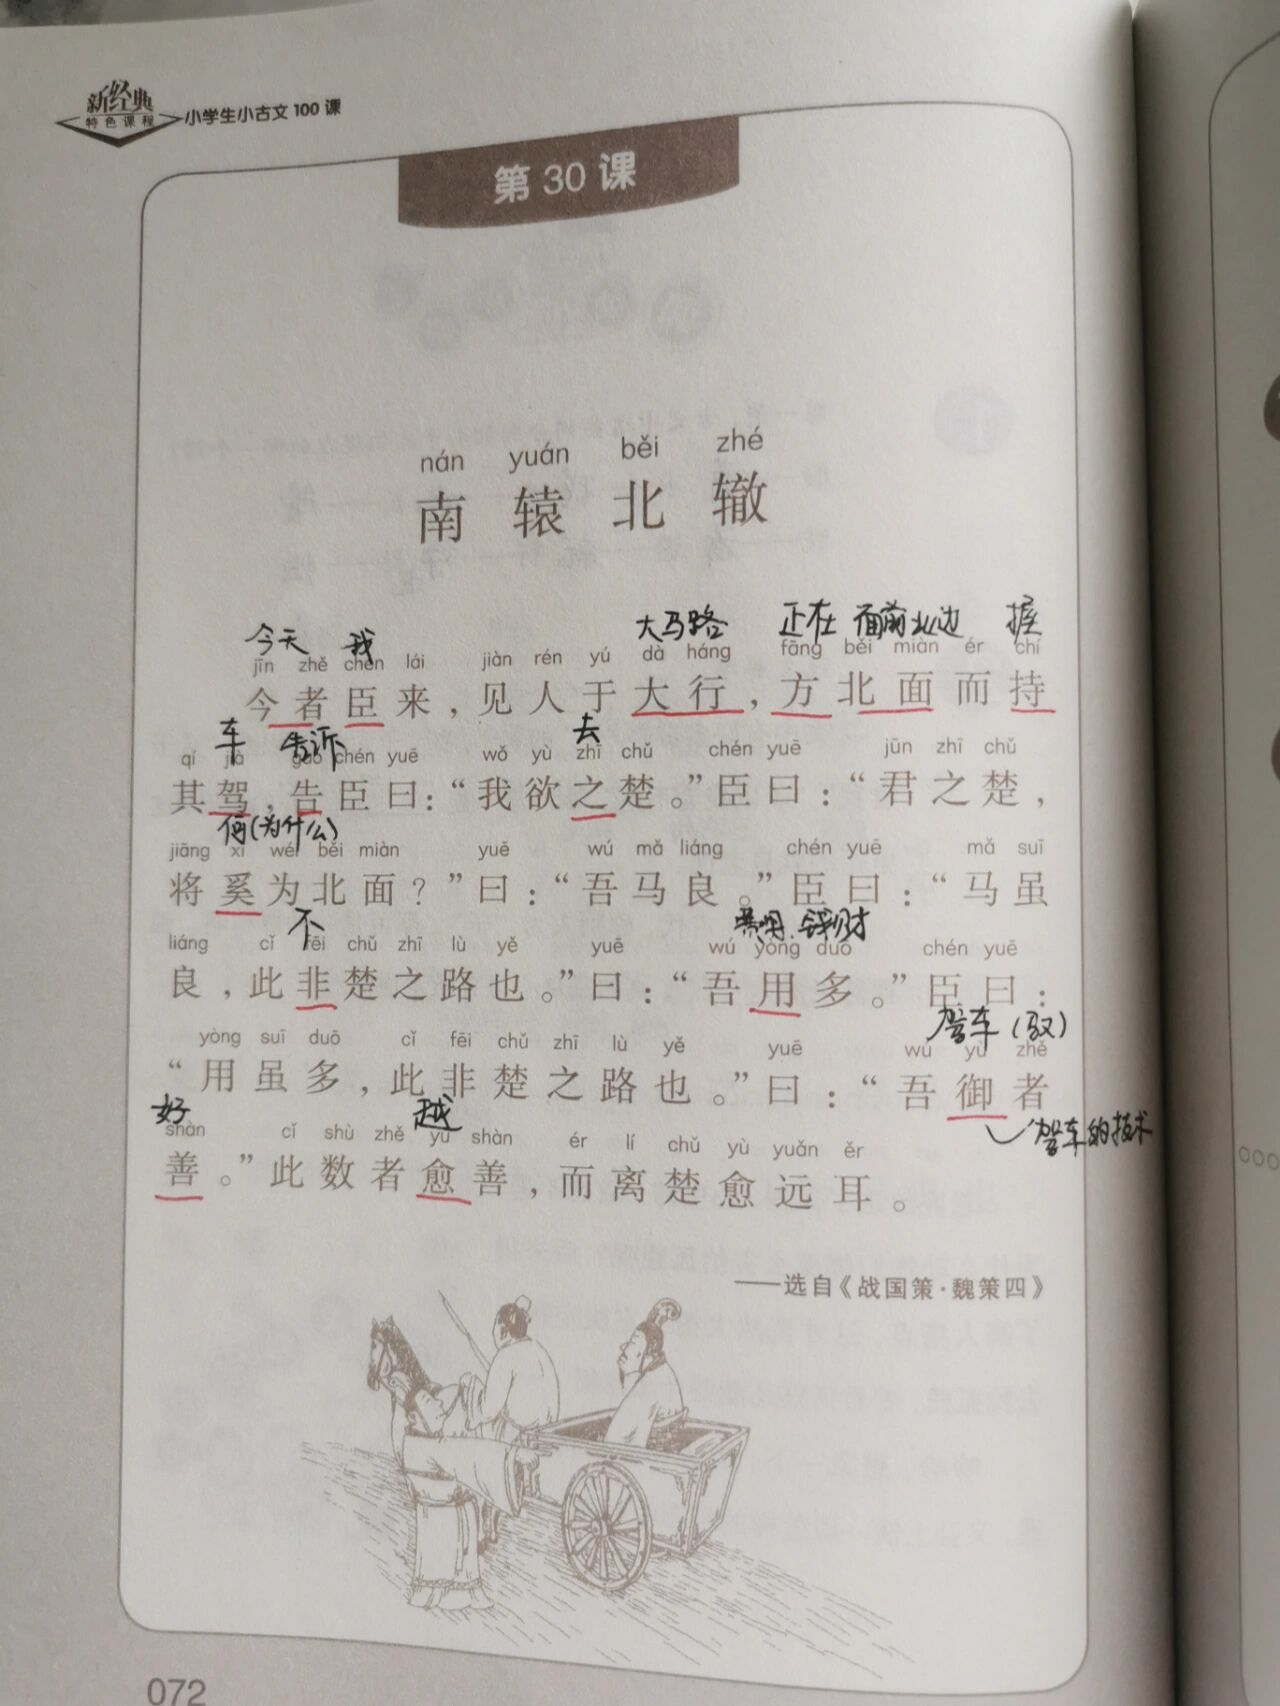 新经典
特色课程
小学生小古文100课
第30课
nán yuán běi zhé
南辕北辙
今天 我 大马路 正在 面前北边 握
jīn zhě chén lái jiàn rén yú dà háng fāng běi miàn ér chí
今者臣来，见人于大行，方北面而持
车 告诉 去
qí jià gào chén yuē wǒ yù zhī chǔ chén yuē jūn zhī chǔ
其驾，告臣曰：“我欲之楚。”臣曰：“君之楚，
何(为什么)
jiāng xī wéi běi miàn yuē wú mǎ liáng chén yuē mǎ suī
将奚为北面？”曰：“吾马良。”臣曰：“马虽
不 费用.钱财
liáng cǐ fēi chǔ zhī lù yě yuē wú yòng duō chén yuē
良，此非楚之路也。”曰：“吾用多。”臣曰：
驾车(驭)
yòng suī duō cǐ fēi chǔ zhī lù yě yuē wú yù zhě
“用虽多，此非楚之路也。”曰：“吾御者
好 越 驾车的技术
shàn cǐ shù zhě yù shàn ér lí chǔ yù yuǎn ěr
善。”此数者愈善，而离楚愈远耳。
——选自《战国策·魏策四》
072